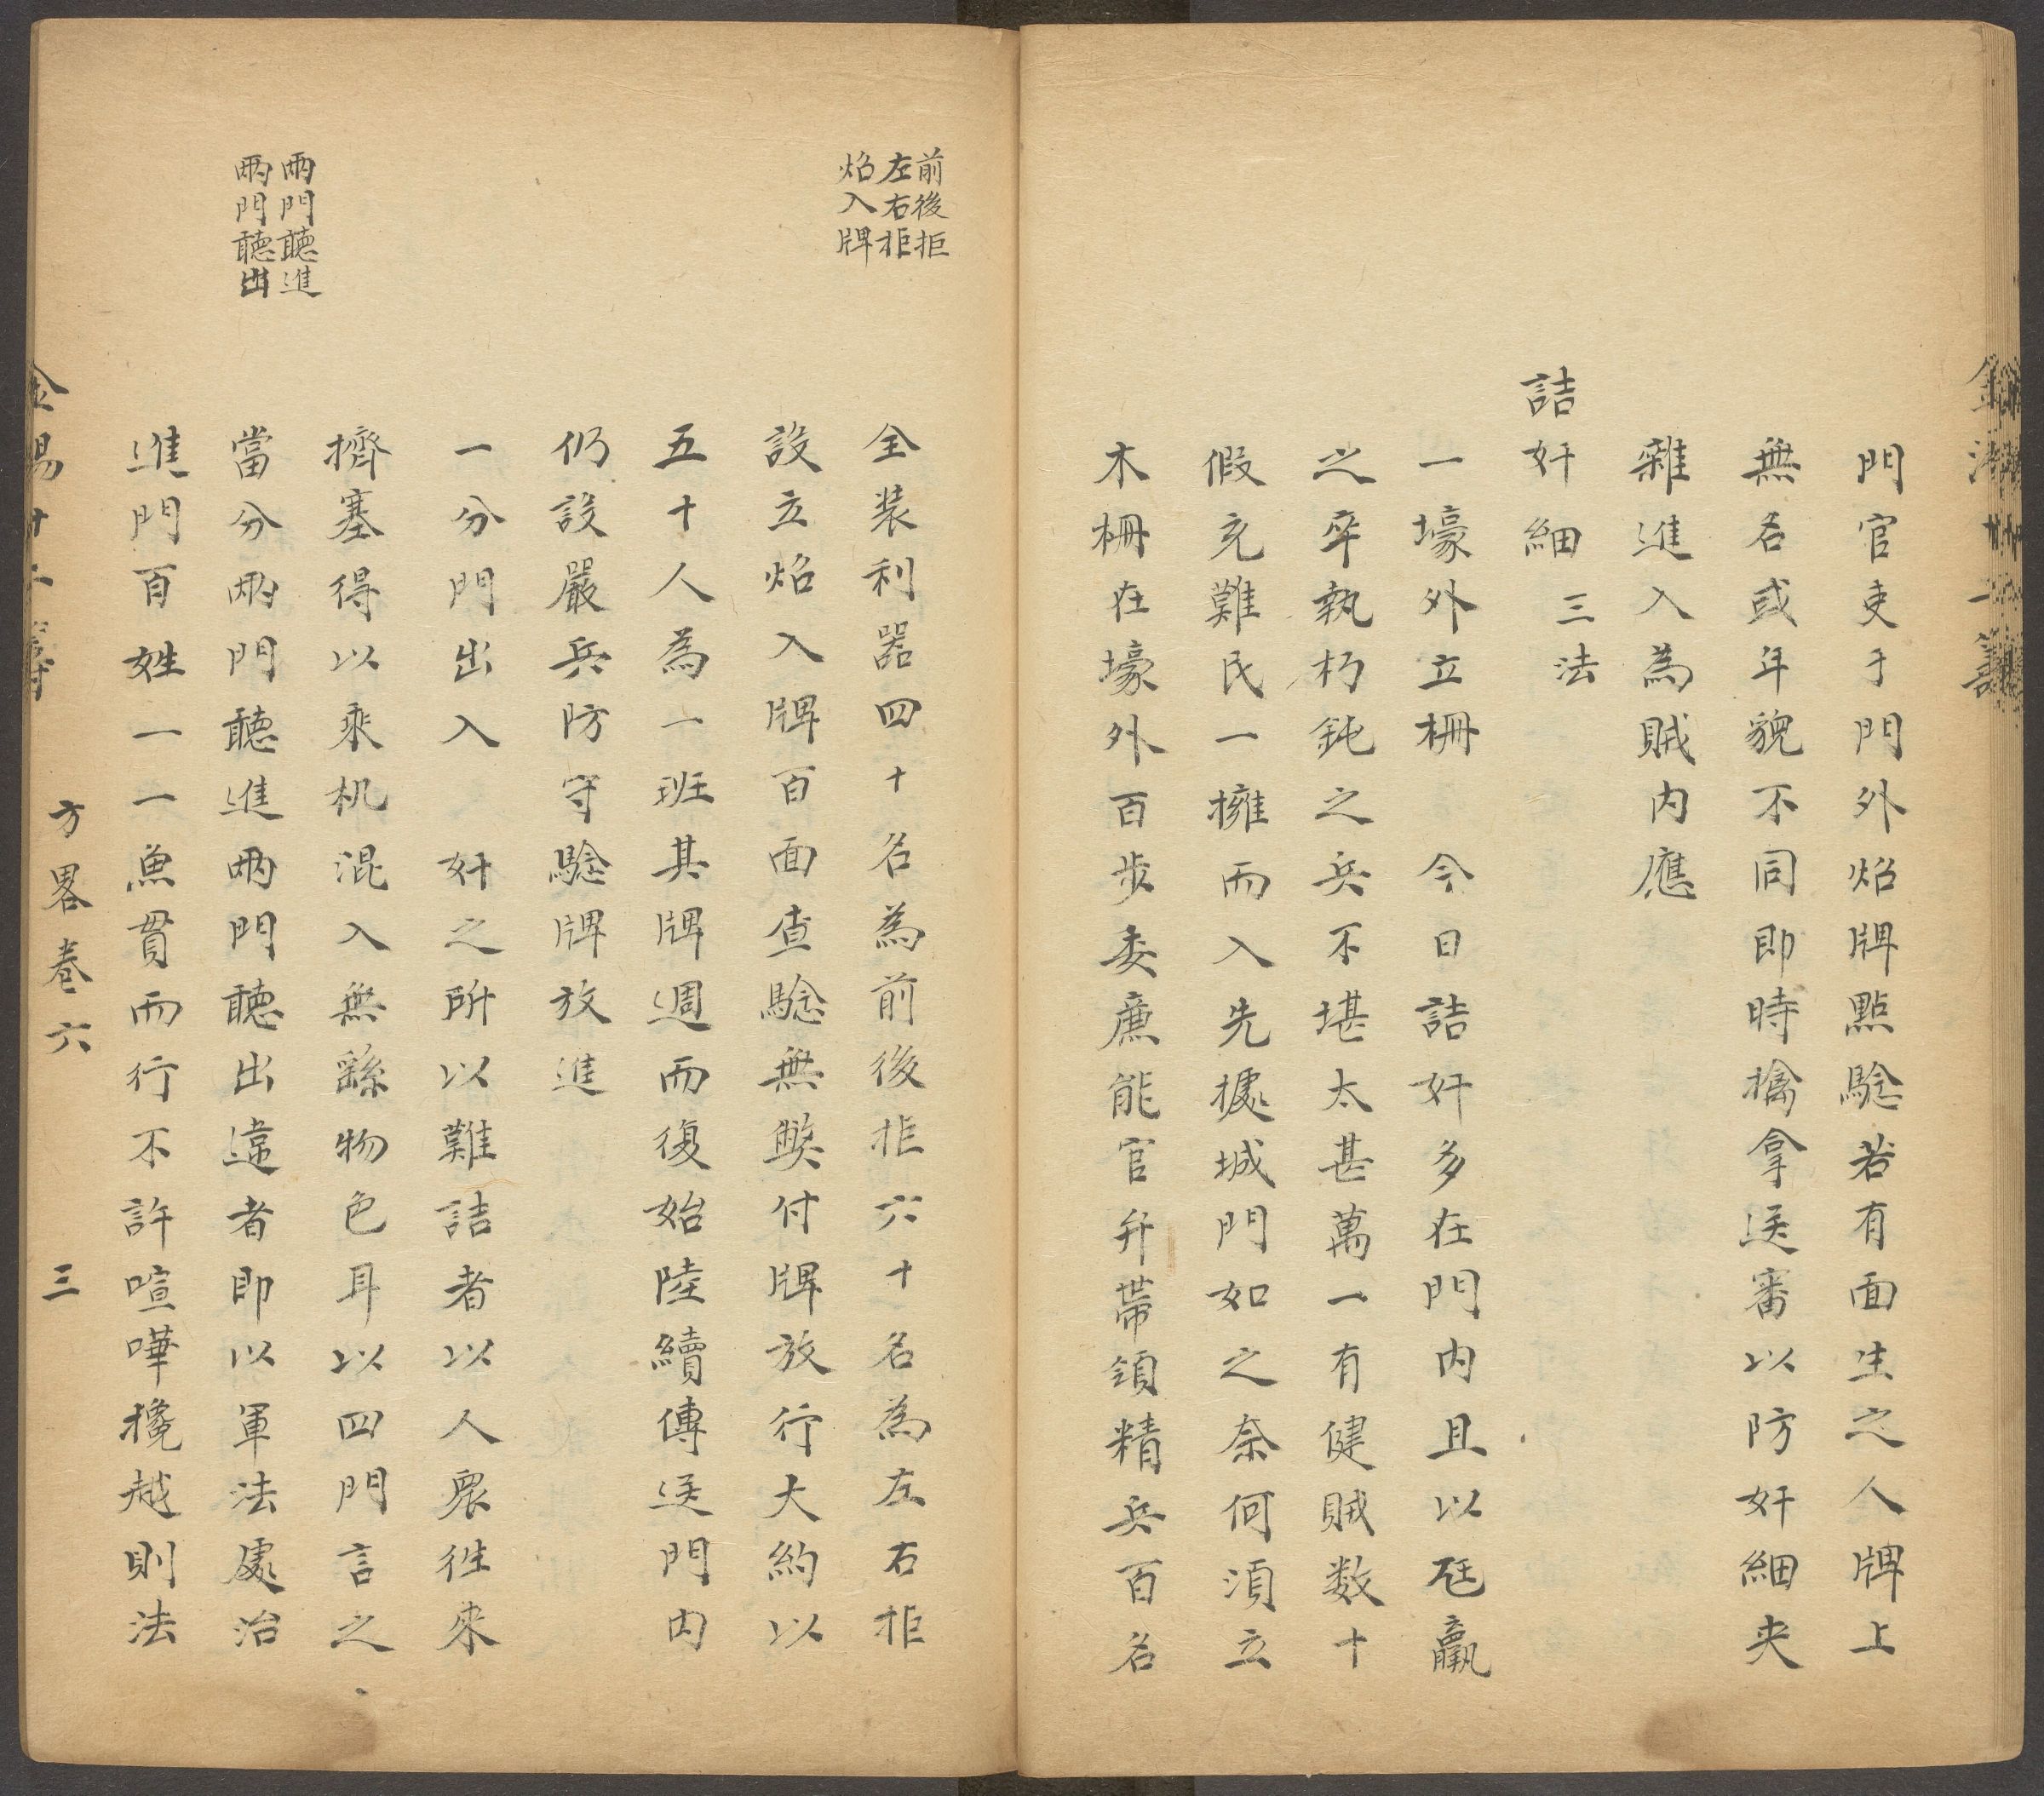 門官吏于門外炤牌點騐若有面生之人牌上
無名或年貌不同即時擒拿送審以防奸細夾
雜進入為賊内應
詰奸細三法
一壕外立柵 今日詰奸多在門内且以尫羸
之卒執朽鈍之兵不堪太甚萬一有健賊数十
假充難民一擁而入先據城門如之奈何須立
木柵在壕外百步委廉能官弁帶領精兵百名
前後拒
左右拒
炤入牌
全装利器四十名為前後拒六十名為左右拒
設立炤入牌百面查騐無獘付牌放行大約以
五十人為一班其牌週而復始陸續傳送門内
仍設嚴兵防守騐牌放進
一分門出入 奸之所以難詰者以人衆徃來
擠塞得以乘机混入無繇物色耳以四門言之
兩門聽進
兩門聽出
當分兩門聽進兩門聽出違者即以軍法處治
進門百姓一一魚貫而行不許喧嘩攙越則法
方畧卷六 三